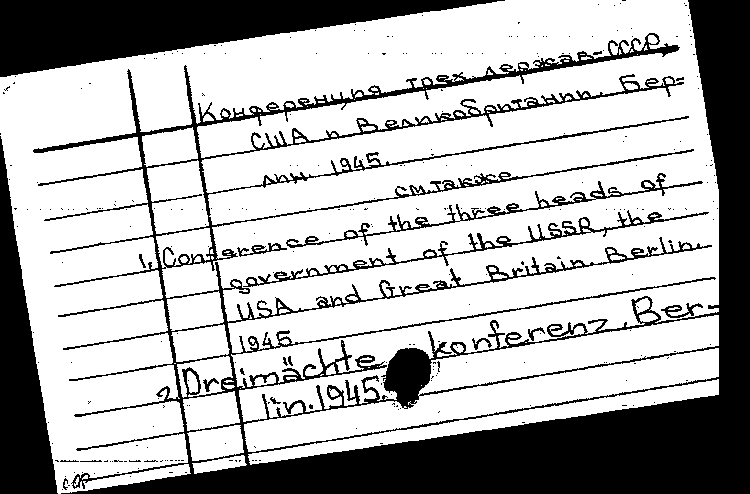 Конференция трех держав-СССР,
США и Великобритании. Бер=
лин. 1945.
см.также
1. Conference of the three heads of
government of the USSR, the
USA. and Great Britain. Berlin.
1945.
2. Dreimächte konferenz. Ber-
lin.1945.